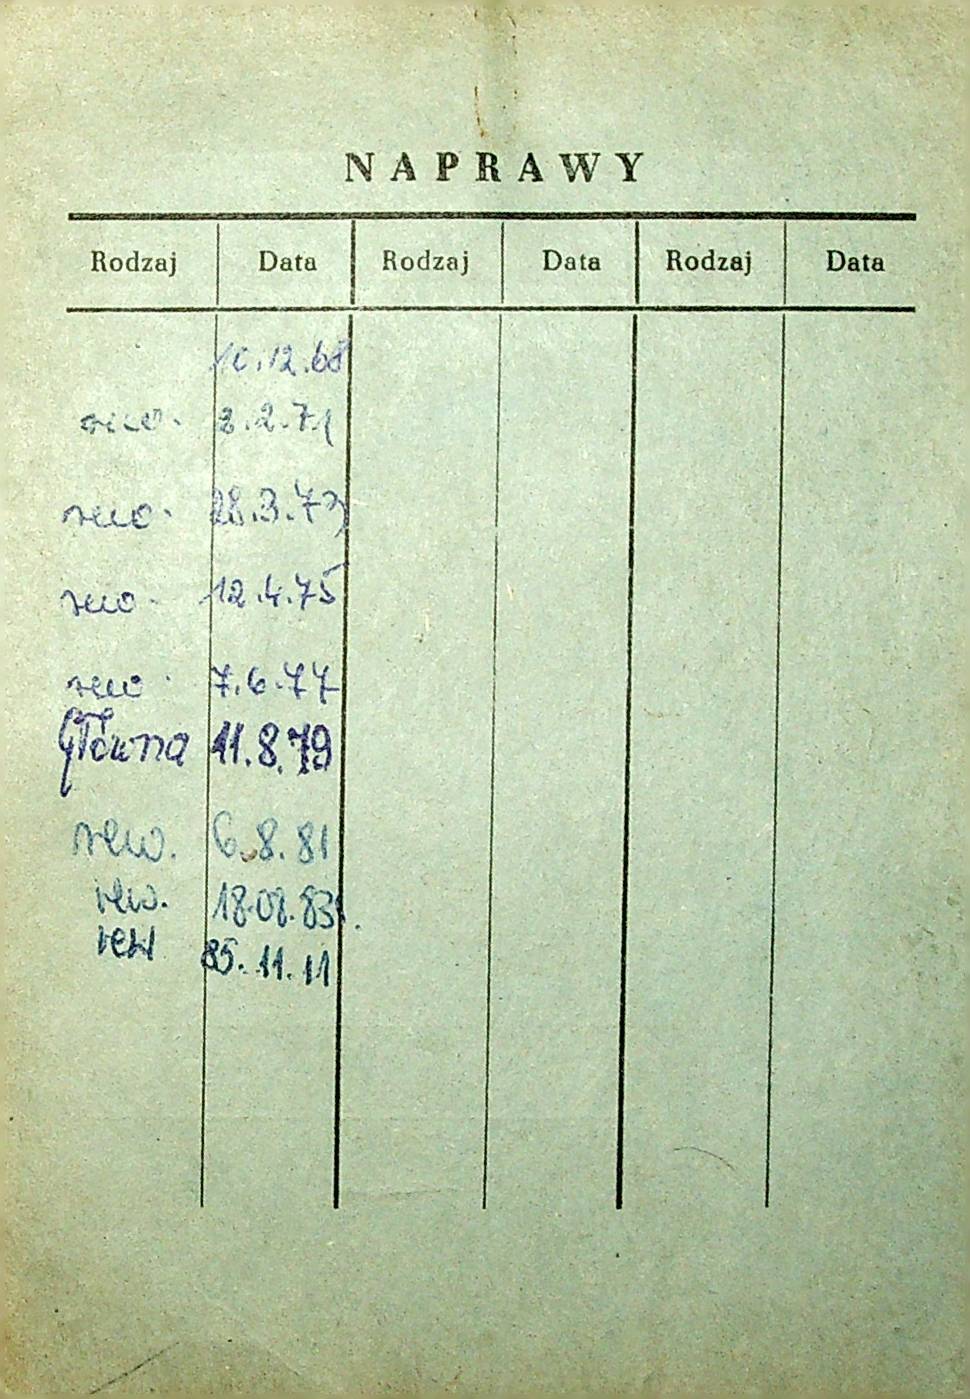 NAPRAWY
Rodzaj Data Rodzaj Data Rodzaj Data
10.12.68
rew. 2.2.71
rew. 28.3.73
rew. 12.4.75
rew. 7.6.77
Główna 11.8.79
rew. 6.8.81
rew. 18.08.83.
rew 85.11.11